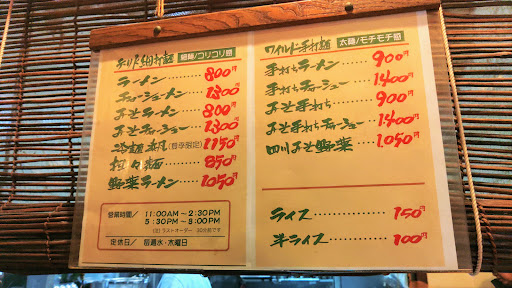 細打麺 細麺/コリコリ麺
ラーメン………800円
チャーシューメン……1300円
みそラーメン………800円
みそチャーシュー……1300円
冷麺 (春季限定) 1150円
担々麺…………850円
野菜ラーメン………1050円
営業時間/ 11:00AM〜2:30PM
5:30PM〜8:00PM
(注)ラストオーダー 30分前です
定休日/ 毎週水・木曜日
ワイルド手打麺 太麺/モチモチ麺
手打ちラーメン………900円
手打ちチャーシューメン…1400円
みそ手打ち…………900円
みそ手打ちチャーシュー…1400円
四川みそ野菜………1050円
ライス……………150円
半ライス……………100円